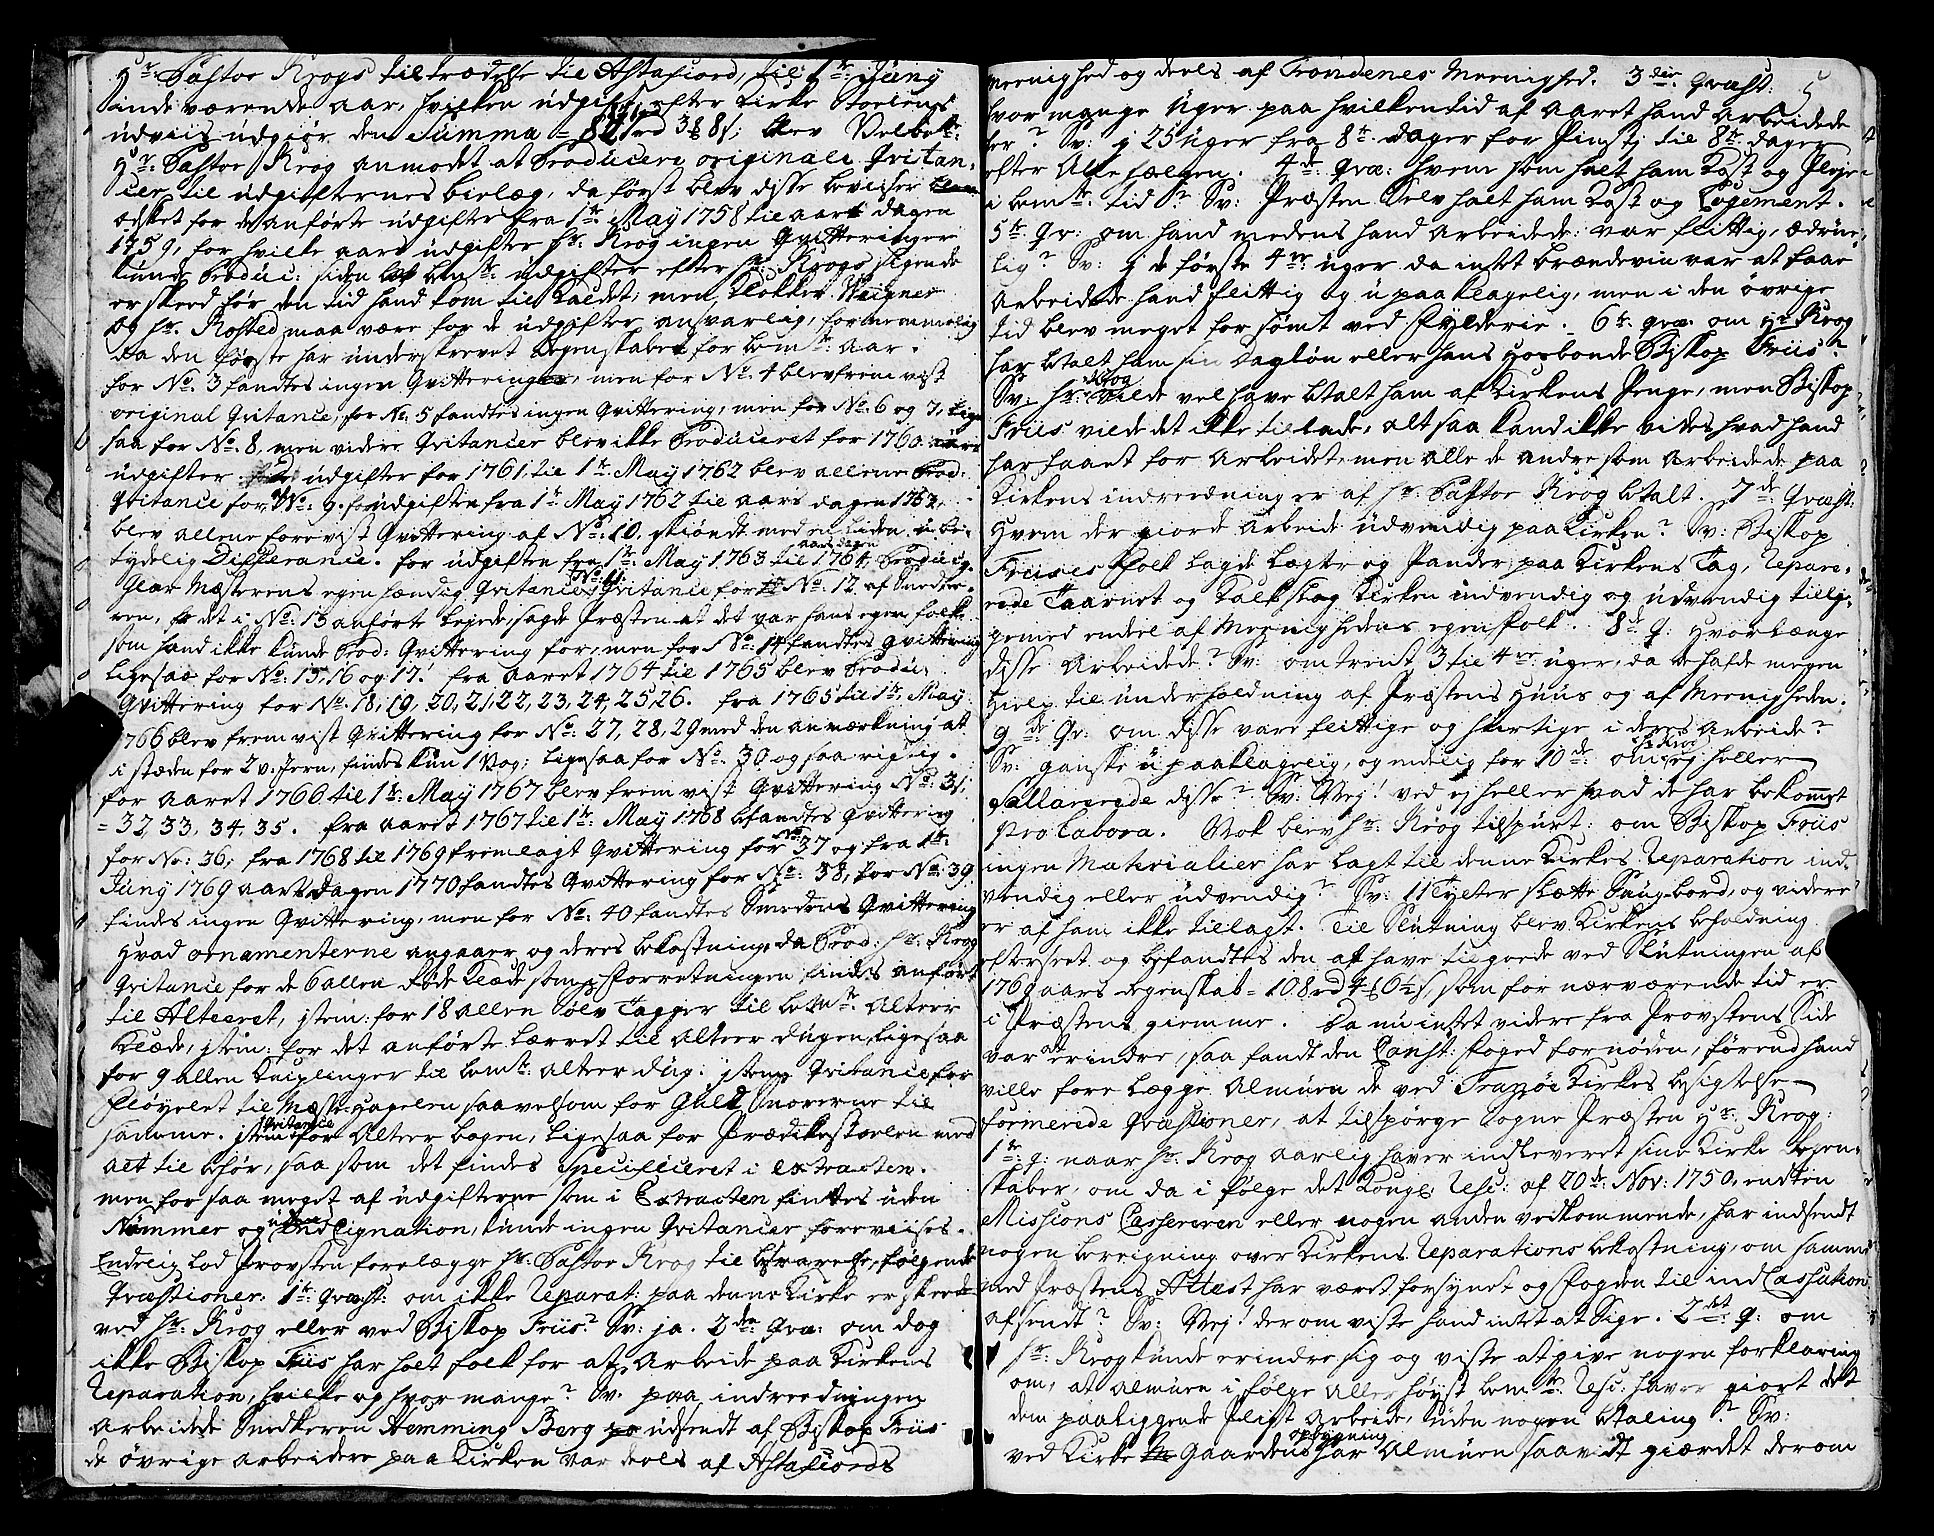 Hr. Pastor Krogs tiltrædelse til Astafiord, til 1te Juny
indeværende aar, hvilken udgift efter Kirke Stoelens
udviis udgiør den Summa = 8 rd 3 8 s; blev Velbete:
Hr: Pastor Krog anmodet at Producere originale Qvitan-
cer til udgifternes beviis, da først blev disse beviiser
æsket for de anførte udgifter fra 1te May 1758 til aars dagen
1759, for hvilke aars udgifter hr. Krog ingen Qvitteringer
kunde Produc: siden bemte udgifter efter hr. Krogs sigende
er skeed før den tid hand kom til Kaldet; men Klokker Weigner
og hr. Rosted maa være for de udgifter ansvarlig, formedmelig
da den første har underskrevet Regenskabet for bemte aar.
for No. 3 fandtes ingen Qvittering, men for No. 4 blev frem vist
original Qvitance, for No. 5 fandtes ingen Qvittering, men for No. 6 og 7, lige
saa for No. 8, men videre Qvitancer blev ikke Produceret for 1760 aars
udgifter. udgifter for 1761 til 1te May 1762 blev allene Prod:
Qvitance for No. 9. for udgiften fra 1te May 1762 til aars dagen 1763,
blev allene forevist Qvittering af No. 10. skiøndt med en liden u-be-
tydelig Differance. for udgiften fra 1te May 1763 til aars dagen 1764, Produc:
Glar Mæsterens egenhændig Qvitance No 11 Qvitance for No. 12 af Snedke-
ren, for det i No. 13 anførte Leyede, sagde Præsten at det var hans egen folk
som hand ikke kunde Prod: Qvittering for, men for No: 14 fandtes Qvittering
ligesaa for No: 15, 16 og 17. fra Aaret 1764 til 1765 blev Produ:
Qvittering for No. 18, 19, 20, 21, 22, 23, 24, 25, 26. fra 1765 til 1te May
1766 blev frem vist Qvittering for No: 27, 28, 29 med den anmærkning at
i stæden for 2 v: Jern, findes kun 1 Vog; ligesaa for No. 30 og saa rigtig.
for Aaret 1766 til 1te May 1767 blev frem vist Qvittering No: 31,
= 32, 33, 34, 35. fra aaret 1767 til 1te May 1768 bfandtes Qvittering
for No: 36, fra 1768 til 1769 fremlagt Qvittering for No 37 og fra 1te
Juny 1769 aars dagen 1770 fandtes Qvittering for No: 38, for No: 39
findes ingen Qvittering, men for No: 40 fandtes Smedens Qvittering
Hvad ornamenterne angaaer og deres bekostning, da Prod: hr. Krog
Qvitance for de 6 allen Røde Klæde som forretningen findes anført
til Alteret, item: for 18 allen Sølv Tagger til bemte Alter
Klæde, item: for det anførte Lærret til Alter Dugen, ligesaa
for 9 allen Kniplinger til bemte alter dug; item Qvitance for
Fløyelet til Mæsse-Hagelen saavelsom for Guld Snorerne til
samme. item Qvitance for Alter bogen, ligesaa for Prædikestoelen med
alt til bhør, saa som det findes specificeret i extracten.
men for saa meget af udgifterne som i Extracten findes uden
Nummer og uden Cignation, kunde ingen Qvitancer foreviises.
Endelig lod Provsten forelægge hr. Pastor Krog til bsvarelse, følgende
Qvæstioner. 1te Qvæst: om ikke Reparat: paa denne Kirke er skeede
ved hr. Krog eller ved Biskop Friis? Sv: ja. 2den Qvæ: om dog
ikke Biskop Friis har holt folk for at Arbeide paa Kirkens
Reparation, hvilke og hvor mange? Sv. paa indreedningen
Arbeidede Snedkeren Hemming Berg udsendt af Biskop Friis
de øvrige arbeidere paa Kirken var deels af Astafiords
5
Meenighed og deels af Trondenes Meenighed. 3die Qvæst:
hvor mange Uger paa hvilken tid af aaret hand Arbeidede
her? Sv: i 25 Uger fra 8te dager for Pinstj til 8te dager
efter Alle hælgen. 4de Qvæ: hvem som holt ham Kost og Pleje
i bemte tid? Sv: Præsten selv holt ham Kost og Logement.
5te Qv: om hand medens hand Arbeidede var flittig, ædrue-
lig? Sv: i de første 4re uger da intet brændeviin var at faae
Arbeidede hand flittig og u paaklagelig, men i den øvrige
tid blev meget forsømt ved Fylderie. 6te qvæ. om hr. Krog
har btalt ham sin Dagløn eller hans Hosbonde Biskop Friis?
Sv: hr. Krog vilde vel have btalt ham af Kirkens Penge, men Biskop
Friis vilde det ikke tillade, alt saa kand ikke vides hvad hand
har faaet for arbeidet, men alle de andre som Arbeidede paa
Kirkens indreedning er af hr. Pastor Krog btalt. 7de Qvæst:
Hvem der giorde Arbeide udvendig paa Kirken? Sv: Biskop
Friises Folk lagde Lægter og Pander paa Kirkens Tag, Repare-
rede Taarnet og Kalkslog Kirken indvendig og udvendig tillj-
gemed endeel af Meenighedens egen folk. 8de q: Hvorlænge
disse Arbeidede? Sv: omtrent 3 til 4re uger, da de hafde megen
Hielp til underholdning af Præstens Huus og af Meenigheden.
9de Qv: om disse vare flittige og hurtige i deres Arbeide?
Sv: ganske u paaklagelig, og endelig for 10de om ej heller
Sallarerede disse? Sv: Nej! ved ej heller hvad de har bekommet
pro Labora. Nok blev hr. Krog tilspurt: om Biskop Friis
ingen Materialier har lagt til denne Kirkes Reparation ind-
vendig eller udvendig? Sv: 11 Tylter slætte Saugbord, og videre
er af ham ikke tillagt. Til Slutning blev Kirkens beholdning
efterseet og bfandtes den at have tilgode ved Slutningen af
1769 aars Regenskab = 108 rd 4 0½ s, som for nærværende tid er
i Præstens giemme. Da nu intet videre fra Provstens Side
var at erindre, saa fandt den Const: foged fornøden, førend hand
ville fore lægge Almuen de ved Tranøe Kirkes bsigtelse
formerede Qvæstioner, at tilspørge Sogne Præsten Hr. Krog:
1te q: naar hr. Krog Aarlig haver indleveret sine Kirke Regen-
skaber, om da i følge det Kongl: Resc: af 20de Nov: 1750, endten
Missions Cassereren eller nogen anden vedkommende, har indsendt
nogen beregning over Kirkens Reparations bekostning, om samme
med Præstens Attest har været forsynet og Fogden til ind Cassation
afsendt? Sv: Nej! derom viste hand intet at Sige. 2det q: om
hr: Krog kunde erindre sig og viste at give nogen forklaring
om, at almuen i følge Aller høyst bemte Resc: haver giort det
dem paaliggende Pligt Arbeide, uden nogen btaling? Sv:
ved Kirke Gaardens opbygning har Almuen saavidt giærdet derom